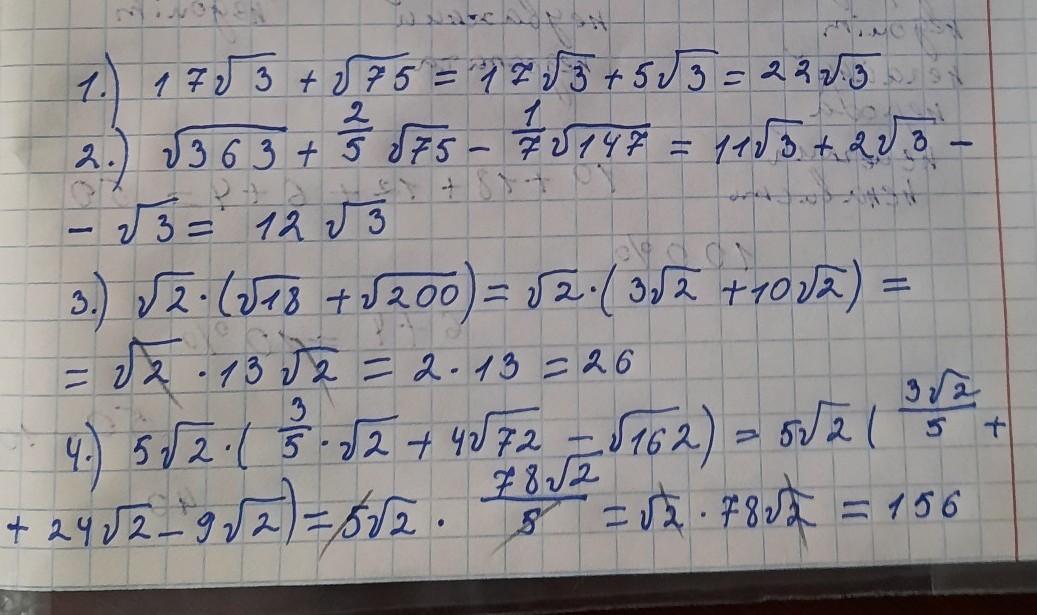 1.) 17√3 + √75 = 17√3 + 5√3 = 22√3
2.) √363 + 2/5 √75 - 1/7 √147 = 11√3 + 2√3 -
- √3 = 12√3
3.) √2 · (√18 + √200) = √2 · (3√2 + 10√2) =
= √2 · 13√2 = 2 · 13 = 26
4.) 5√2 · (3/5 · √2 + 4√72 - √162) = 5√2 (3√2/5 +
+ 24√2 - 9√2) = 5√2 · 78√2/5 = √2 · 78√2 = 156